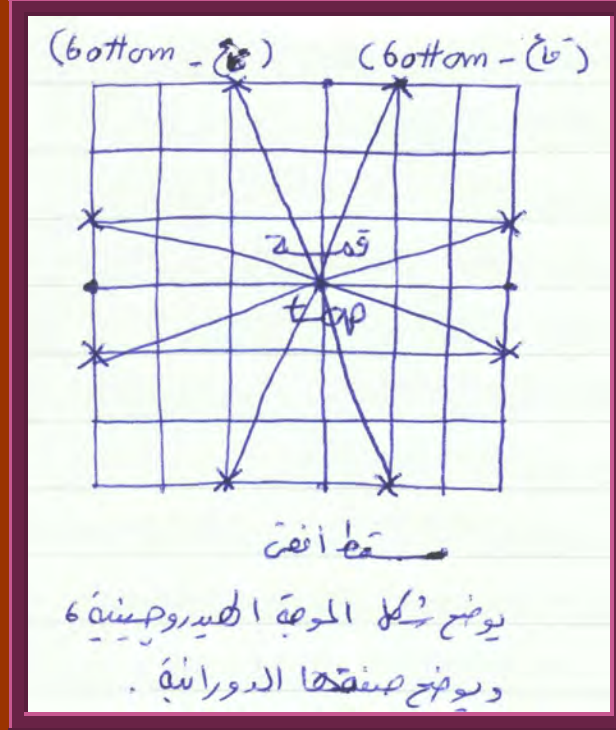 (bottom - قاع) (bottom - قاع)
قمــة
top
مسقط أفقى
يوضح شكل الموجة الهيدروجينية ،
ويوضح صفتها الدورانية .